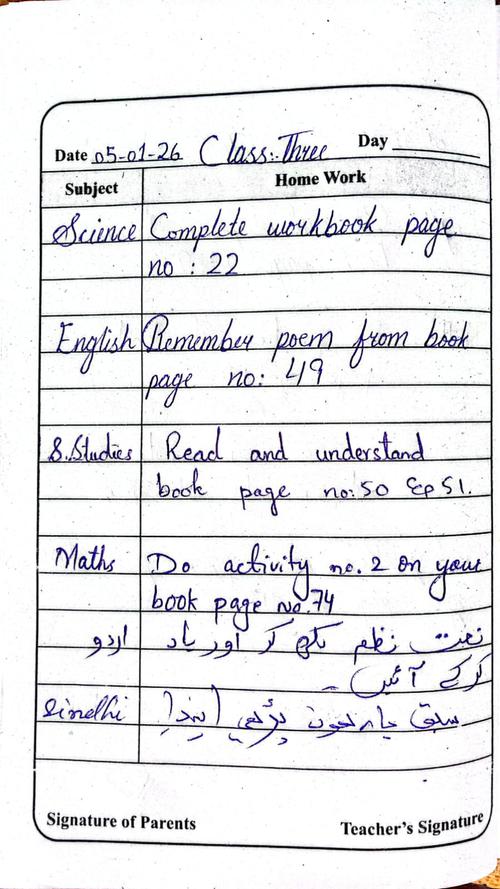 Date 05-01-26 Class:Three Day
Subject Home Work
Science Complete workbook page
no : 22
English Remember poem from book
page no: 49
S.Studies Read and understand
book page no:50 & 51.
Maths Do activity no. 2 on your
book page no.74
اردو نعت نظم لکھ کر اور یاد
کرکے آئیں ۔
Sindhi سبق يارهون پڙهي ايندا
Signature of Parents Teacher's Signature